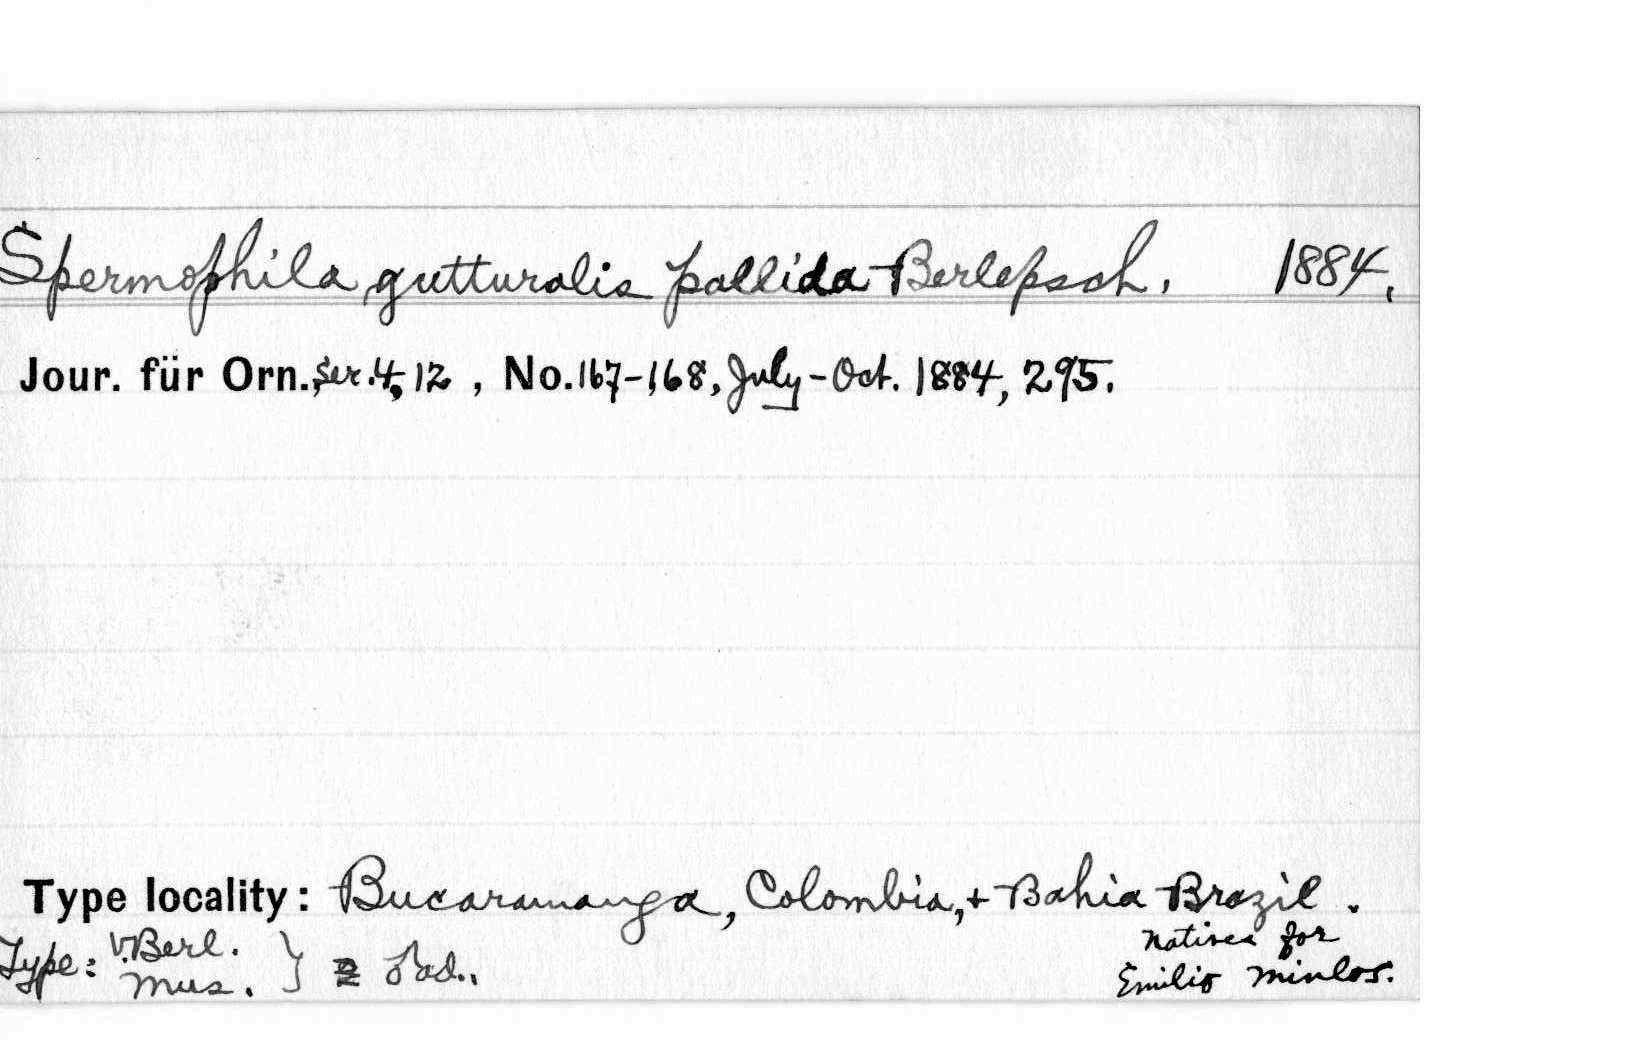 Spermophila gutturalis pallida Berlepsch. 1884.
Jour. für Orn., ser. 4, 12, No. 167-168, July-Oct. 1884, 295.
Type locality: Bucaramanga, Colombia, + Bahia Brazil.
Type: v. Berl. Mus. } 2
natives for
Emilio Minlos.